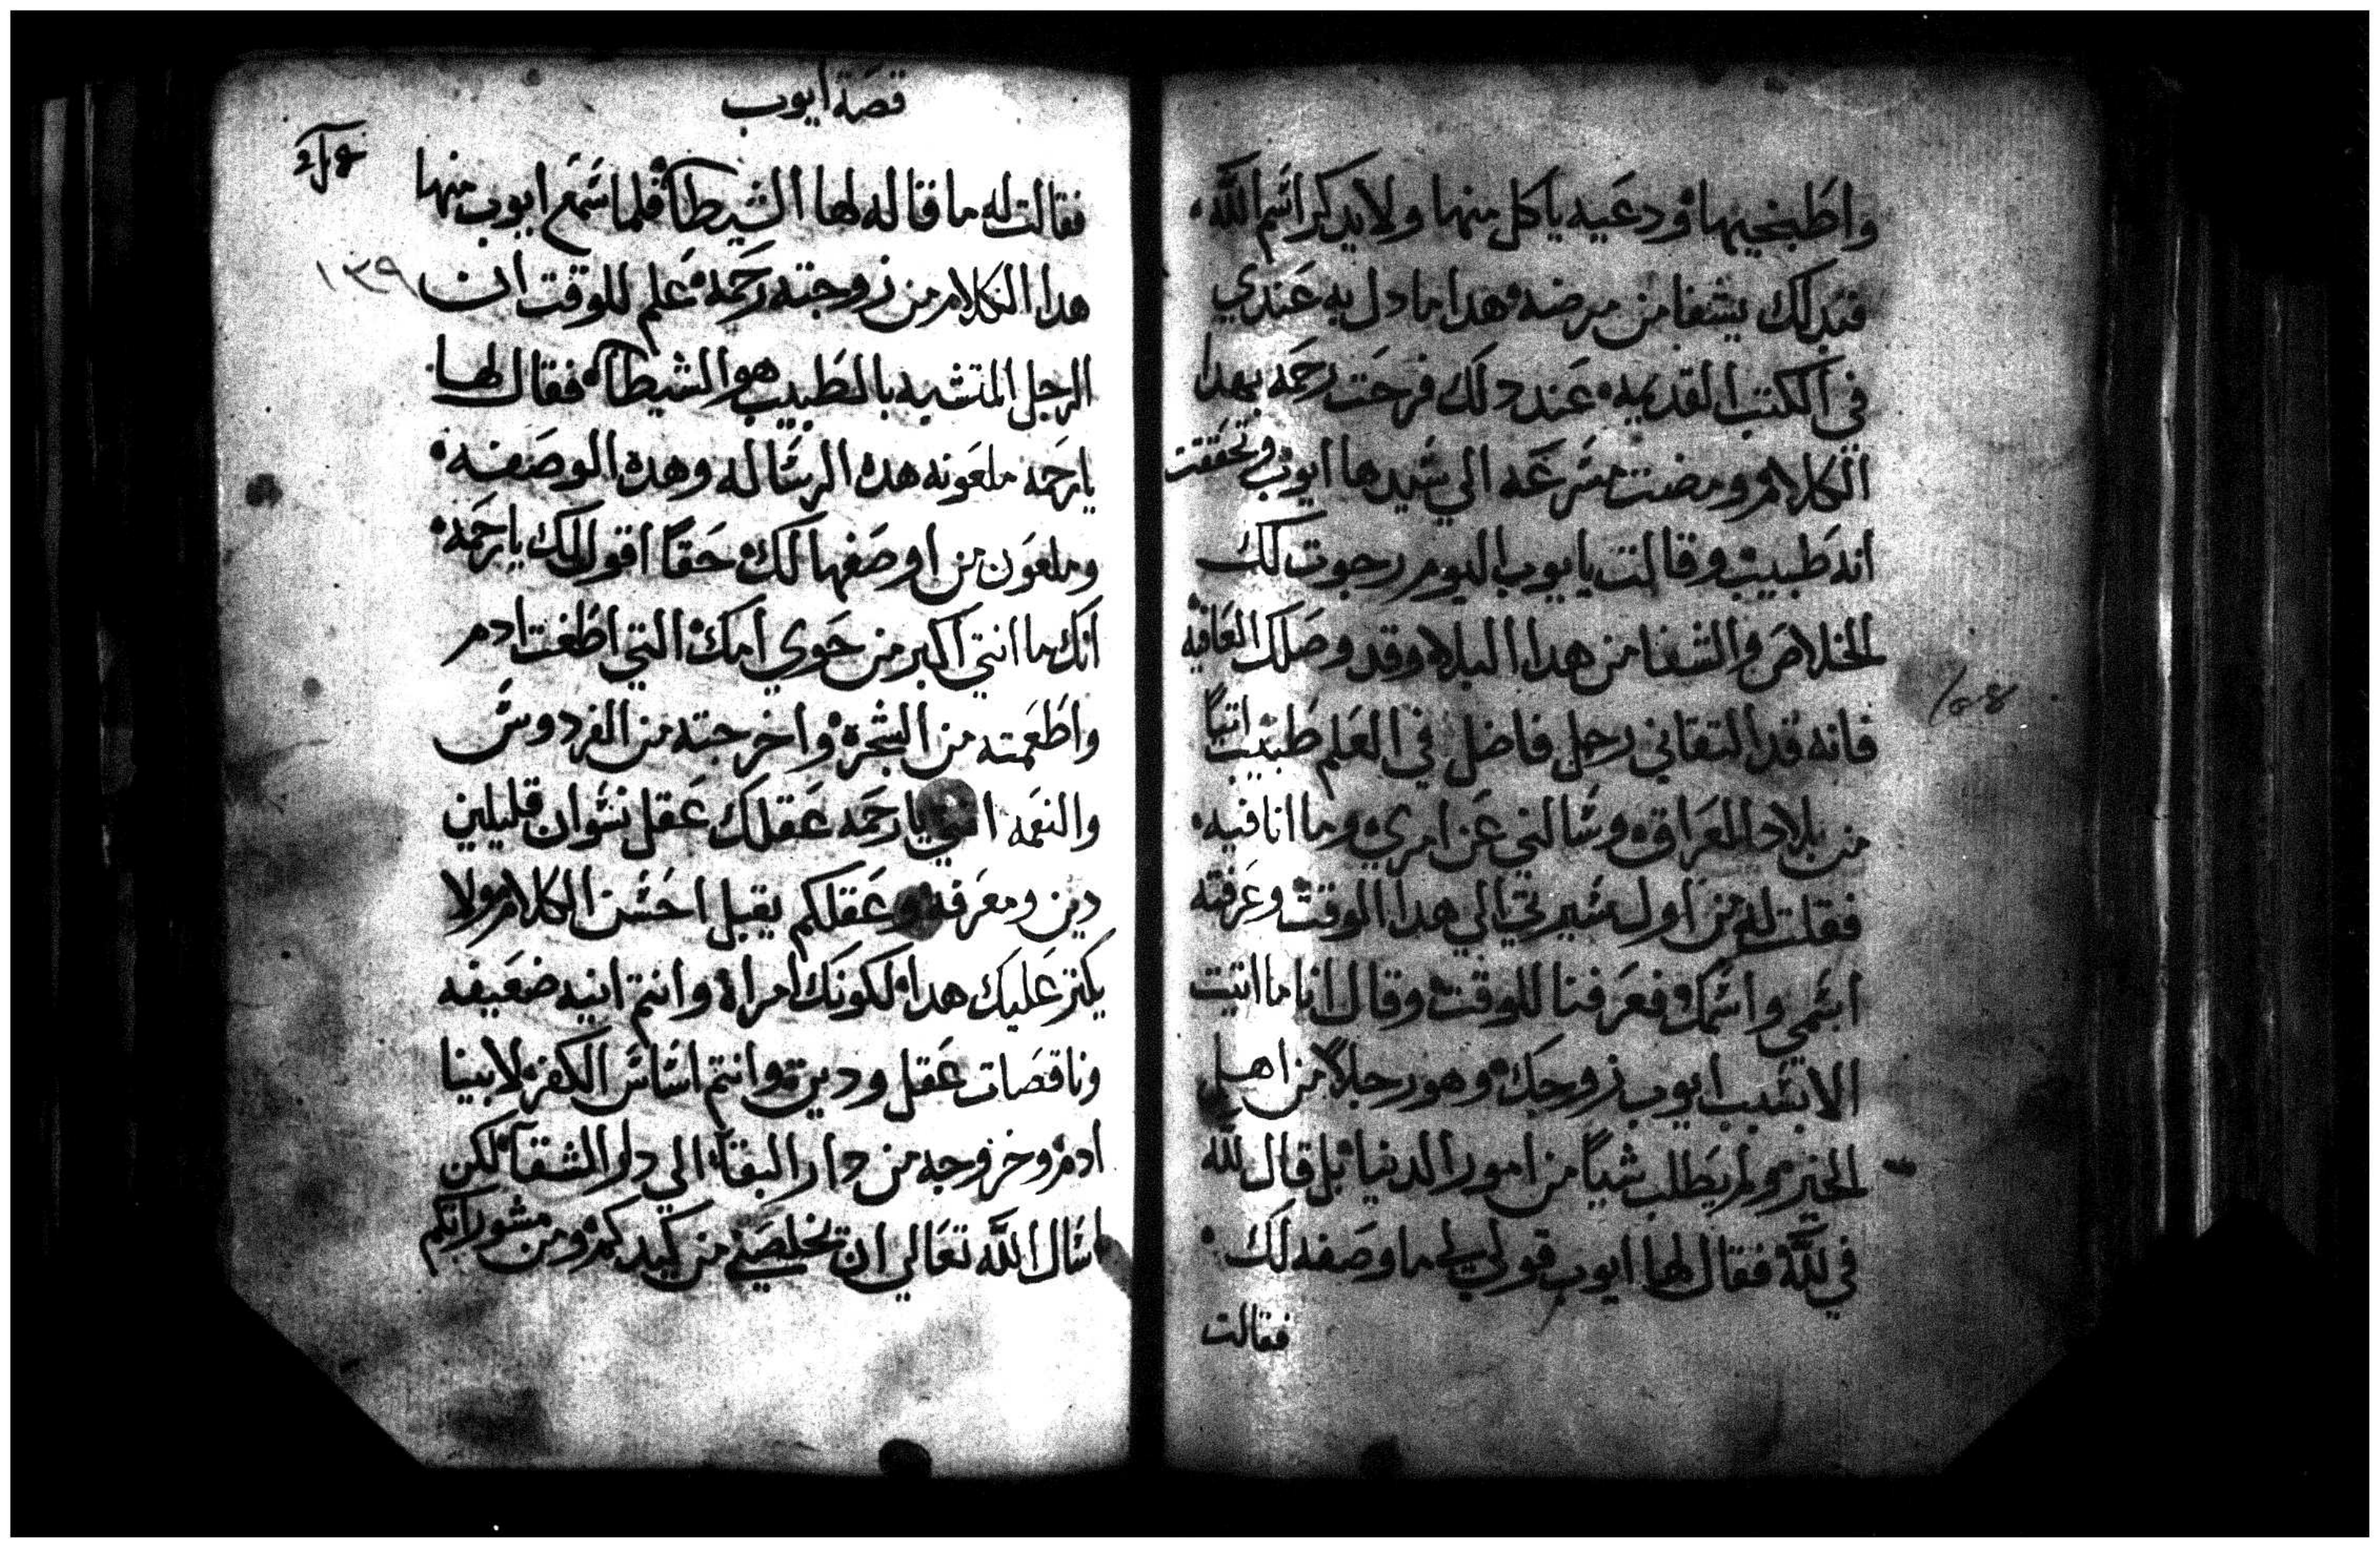 واطبخيها ودعيه ياكل منها ولا يدكر اسم الله
فبدلك يشفا من مرضه هدا ما دل به عندي
في الكتب القديمه عند دلك فرحت رحمه بهدا
الكلام ومضت مسرعه الي سيدها ايوب وتحققت
انه طبيب وقالت يا يوب اليوم رجوت لك
الخلاص والشفا من هدا البلاء وقد وصلك العافيه
فانه قد التقاني رجل فاضل في العلم طبيب اتياً
من بلاد العراق وسالني عن امري وما انا فيه
فقلت له من اول سيرتي الي هدا الوقت وعرفته
اسمي واسمك فعرفنا للوقت وقال انا ما اتيت
الا بسبب ايوب زوجك وهو رجلاً من اهل
الخير ولم يطلب شياً من امور الدنيا بل قال لله
في لله فقال لها ايوب قولي لي ما وصفه لك
فقالت
١٥٤
قصة ايوب
فقالت له ما قاله لها الشيطان فلما سمع ايوب منها
هدا الكلام من زوجته رحمه علم للوقت ان
١٣٩
الرجل المتشبه بالطبيب هو الشيطان فقال لها
يا رحمه ملعونه هده الرساله وهده الوصفه
وملعون من اوصفها لك حقاً اقول لك يا رحمه
انك ما انتي اكبر من حوي امك التي اطغت ادم
واطعمته من الشجره واخرجته من الفردوس
والنعمه يا رحمه عقلك عقل نسوان قليلين
دين ومعرفه وعقلكم يقبل احسن الكلام ولا
يكتر عليك هدا لكونك امراه وانتم انيه ضعيفه
وناقصات عقل ودين وانتم اساس الكفر لابينا
ادم وخروجه من دار البقا الي دار الشقا لكن
اسال الله تعالي ان يخلصني من كيدكم ومن مشوراتكم